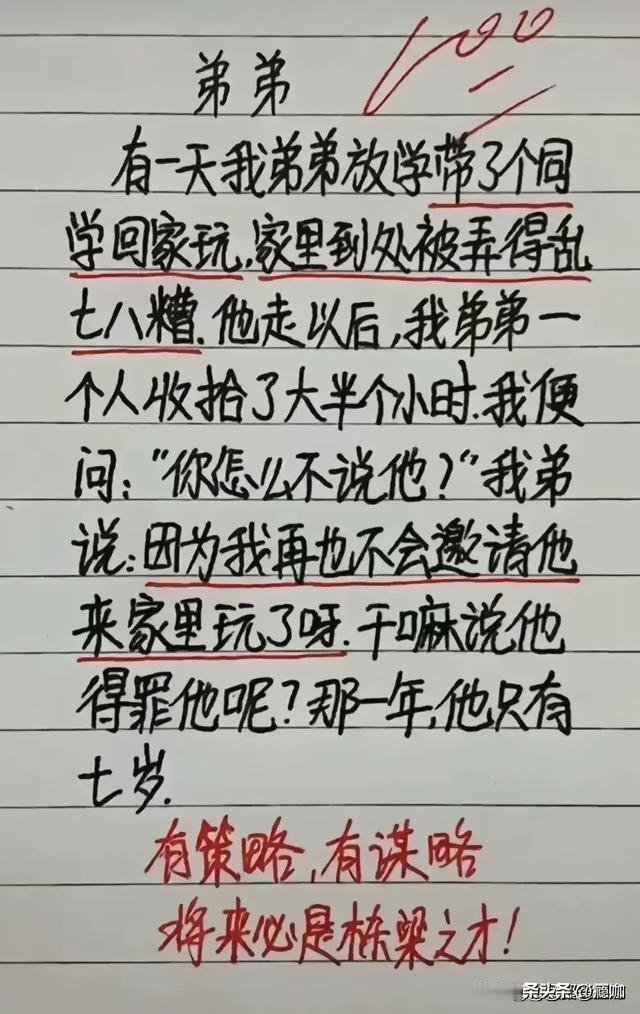 100
弟弟
有一天我弟弟放学带了个同
学回家玩,家里到处被弄得乱
七八糟.他走以后,我弟弟一
个人收拾了大半个小时.我便
问:“你怎么不说他?”我弟
说:因为我再也不会邀请他
来家里玩了呀.干嘛说他
得罪他呢?那一年,他只有
七岁.
有策略,有谋略
将来必是栋梁之才!